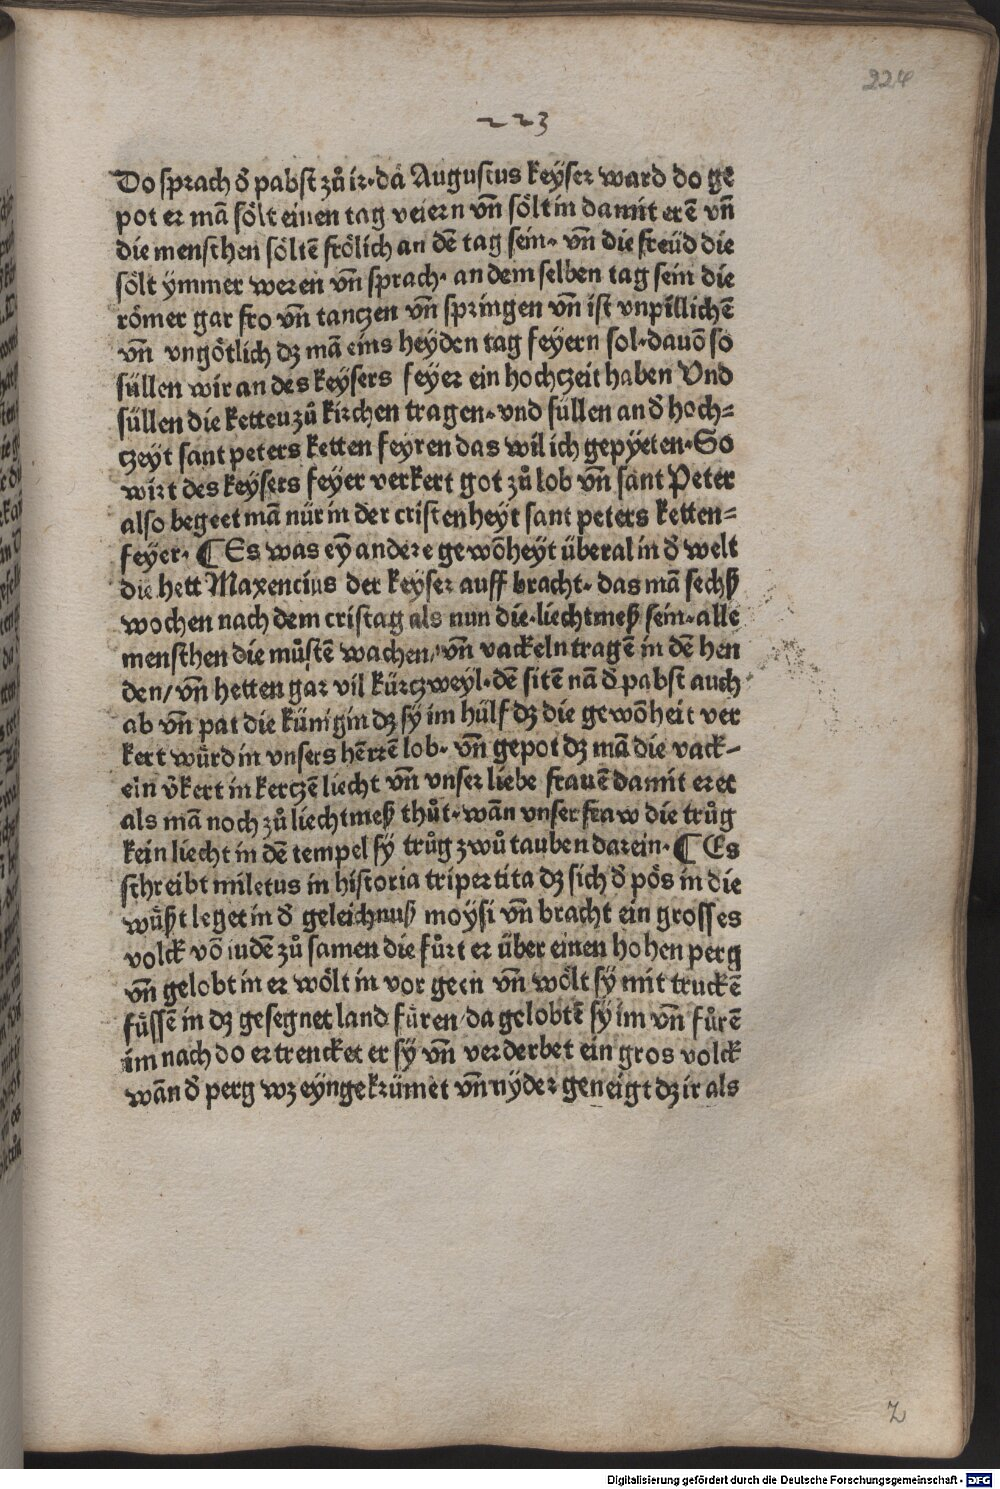 224
223
Do sprach d̕ pabst zů ir·dā Augustus keÿser ward do ge
pot er mā sölt einen tag veiern vn̄ sölt in damit erē vn̄
die menschen söltē frölich an dē tag sein· vn̄ die freüd die
sölt ÿmmer weren vn̄ sprach· an dem selben tag sein die
römer gar fro vn̄ tanczen vn̄ springen vn̄ ist vnpillichē
vn̄ vngötlich dz mā eins heÿden tag feÿern sol·dauō so
süllen wir an des keÿsers feÿer ein hochczeit haben Vnd
süllen die ketten zů kirchen tragen·vnd süllen an d̕ hoch=
czeÿt sant peters ketten feÿren das wil ich gepÿeten·So
wirt des keÿsers feÿer verkert got zů lob vn̄ sant Peter
also begeet mā nür in der cristenheÿt sant peters ketten=
feÿer· ¶ Es was eÿ andere gewōheÿt überal in d̕ welt
die hett Maxencius der keÿser auff bracht· das mā sechß
wochen nach dem cristag als nun die·liechtmeß sein·alle
menschen die můstē wachen/vn̄ vackeln tragē in dē hen
den/vn̄ hetten gar vil kürczweÿl·dē sitē nā d̕ pabst auch
ab vn̄ pat die künigin dz sÿ im hülf dz die gewōheit ver
kert würd in vnsers hērrē lob· vn̄ gepot dz mā die vack=
eln v̕kert in kerczē liecht vn̄ vnser liebe frauē damit eret
als mā noch zů liechtmeß thůt·wān vnser fraw die trůg
kein liecht in dē tempel sÿ trůg zwů tauben darein·¶ Es
schreibt miletus in historia tripertita dz sich d̕ pös in die
wůßt leget in d̕ geleichnuß moÿsi vn̄ bracht ein grosses
volck vō iudē zů samen die fůrt er über einen hohen perg
vn̄ gelobt in er wölt in vor geen vn̄ wölt sÿ mit truckē
füssē in dz gesegnet land füren/da gelobtē sÿ im vn̄ fůrē
im nach do ertrencket er sÿ vn̄ verderbet ein gros volck
wān d̕ perg wz eÿngekrümet vn̄ nÿder geneigt dz ir als
z
Digitalisierung gefördert durch die Deutsche Forschungsgemeinschaft - DFG